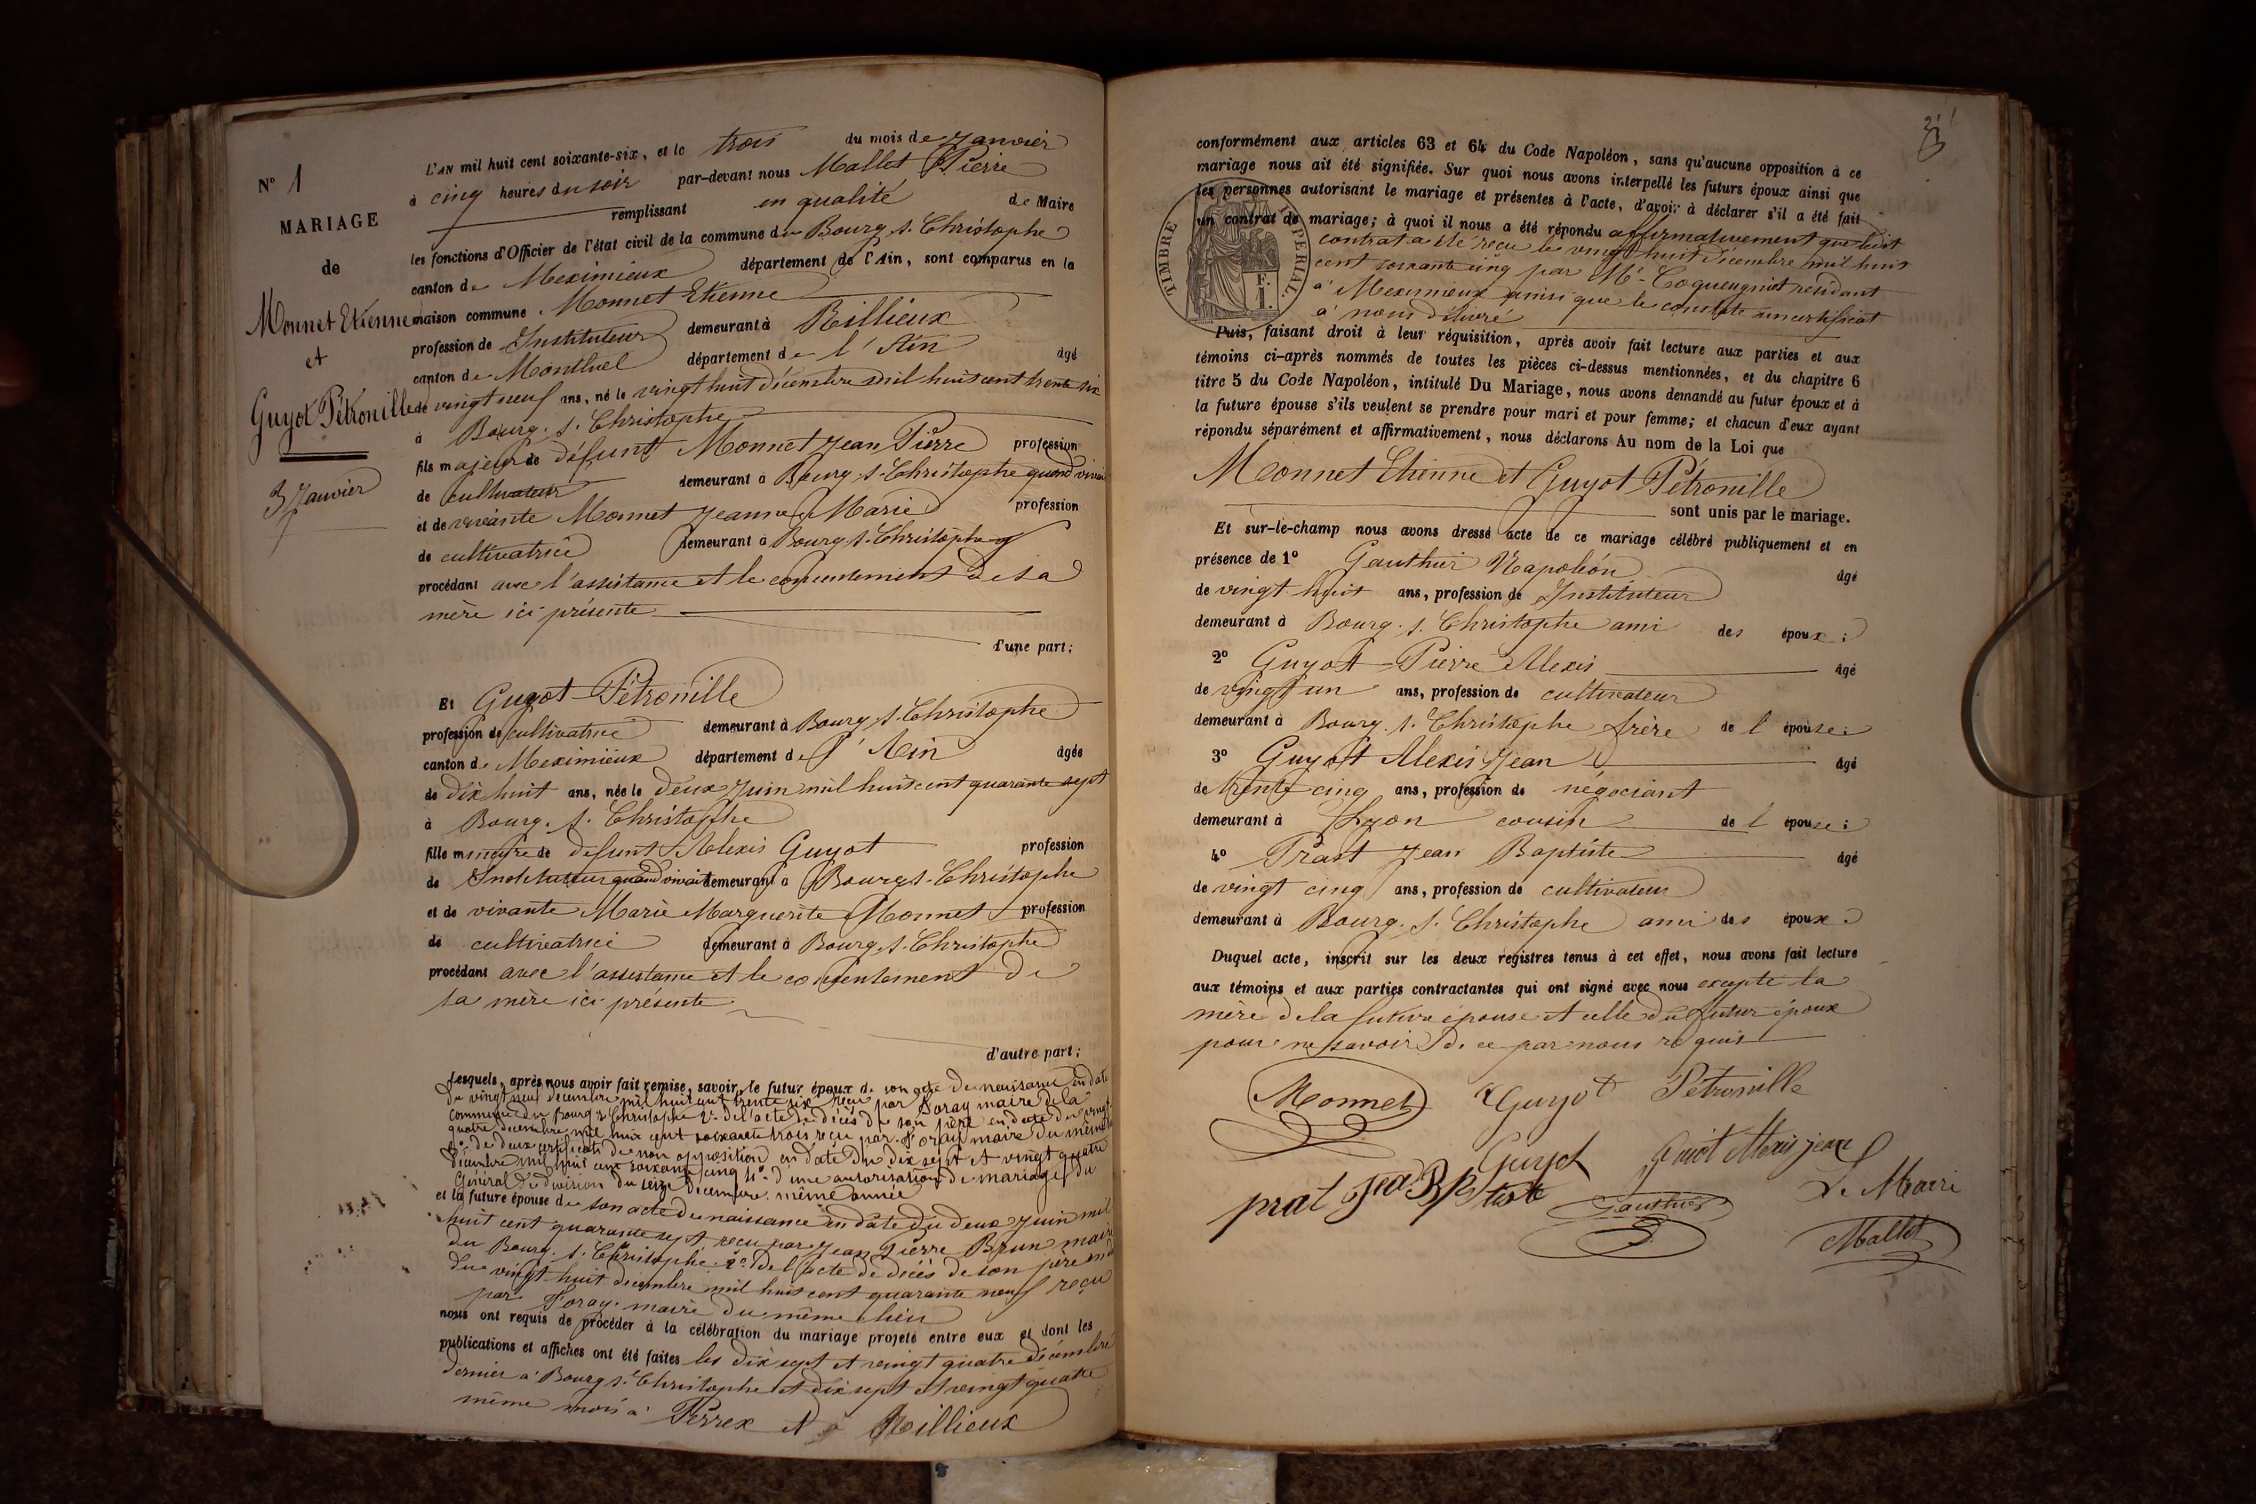 N° 1
MARIAGE
de
Monnet Etienne
et
Guyot Pétronille
3 Janvier
L'AN mil huit cent soixante-six, et le trois du mois de Janvier
à cinq heures du soir par-devant nous Mallet Pierre
remplissant en qualité de Maire
les fonctions d'Officier de l'état civil de la commune de Bourg St Christophe
canton de Meximieux département de l'Ain, sont comparus en la
maison commune Monnet Etienne
profession de Instituteur demeurant à Rillieux
canton de Montluel département de l'Ain âgé
de vingt neuf ans, né le vingt huit décembre mil huit cent trente six
à Bourg St Christophe
fils majeur de défunt Monnet Jean Pierre profession
de cultivateur demeurant à Bourg St Christophe quand vivait
et de vivante Monnet Jeanne Marie profession
de cultivatrice demeurant à Bourg St Christophe
procédant avec l'assistance et le consentement de sa
mère ici présente
d'une part;
Et Guyot Pétronille
profession de cultivatrice demeurant à Bourg St Christophe
canton de Meximieux département de l'Ain âgée
de dix huit ans, née le deux Juin mil huit cent quarante sept
à Bourg St Christophe
fille mineure de defunt Alexis Guyot profession
de Instituteur quand vivait demeurant à Bourg St Christophe
et de vivante Marie Marguerite Monnet profession
de cultivatrice demeurant à Bourg St Christophe
procédant avec l'assistance et le consentement de
sa mère ici présente
d'autre part;
Lesquels, après nous avoir fait remise, savoir, le futur époux de son acte de naissance en date
du vingt neuf decembre mil huit cent trente six reçu par Foray maire de la
commune de Bourg St Christophe 2° de l'acte de décès de son père en date du vingt
quatre decembre mil huit cent soixante trois reçu par Foray maire du même
3° de deux certificats de non opposition en date du dix sept et vingt quatre
décembre mil huit cent soixante cinq 4° d'une autorisation de mariage du
Général de division du seize decembre même année
et la future épouse de son acte de naissance en date du deux Juin mil
huit cent quarante sept reçu par Jean Pierre Brun maire
du Bourg St Christophe 2° de l'acte de décès de son père en
du vingt huit decembre mil huit cent quarante neuf reçu
par Foray maire du même lieu
nous ont requis de procéder à la célébration du mariage projeté entre eux et dont les
publications et affiches ont été faites les dix sept et vingt quatre décembre
dernier à Bourg St Christophe et dix sept et vingt quatre
même mois à Perrex et à Rillieux
conformément aux articles 63 et 64 du Code Napoléon, sans qu'aucune opposition à ce
mariage nous ait été signifiée. Sur quoi nous avons interpellé les futurs époux ainsi que
les personnes autorisant le mariage et présentes à l'acte, d'avoir à déclarer s'il a été fait
un contrat de mariage; à quoi il nous a été répondu affirmativement que ledit
contrat a été reçu le vingt huit décembre mil huit
cent soixante cinq par Me Coqueugniot résidant
à Meximieux ainsi que le constate un certificat
à nous délivré
TIMBRE IMPERIAL.
F.
1.
Puis, faisant droit à leur réquisition, après avoir fait lecture aux parties et aux
témoins ci-après nommés de toutes les pièces ci-dessus mentionnées, et du chapitre 6
titre 5 du Code Napoléon, intitulé Du Mariage, nous avons demandé au futur époux et à
la future épouse s'ils veulent se prendre pour mari et pour femme; et chacun d'eux ayant
répondu séparément et affirmativement, nous déclarons Au nom de la Loi que
Monnet Etienne et Guyot Pétronille
sont unis par le mariage.
Et sur-le-champ nous avons dressé acte de ce mariage célébré publiquement et en
présence de 1° Gauthier Napoléon âgé
de vingt huit ans, profession de Instituteur
demeurant à Bourg St Christophe ami des époux;
2° Guyot Pierre Alexis âgé
de vingt un ans, profession de cultivateur
demeurant à Bourg St Christophe frère de l'épouse;
3° Guyot Alexis Jean âgé
de trente cinq ans, profession de négociant
demeurant à Lyon cousin de l'épouse;
4° Prast Jean Baptiste âgé
de vingt cinq ans, profession de cultivateur
demeurant à Bourg St Christophe ami des époux.
Duquel acte, inscrit sur les deux registres tenus à cet effet, nous avons fait lecture
aux témoins et aux parties contractantes qui ont signé avec nous excepté la
mère de la future épouse et celle du futur époux
pour ne savoir de ce par nous requis
Monnet Guyot Pétronille
Guyot Guiot Alexis jean
prat jea Bptiste Gauthier Le Maire
Mallet